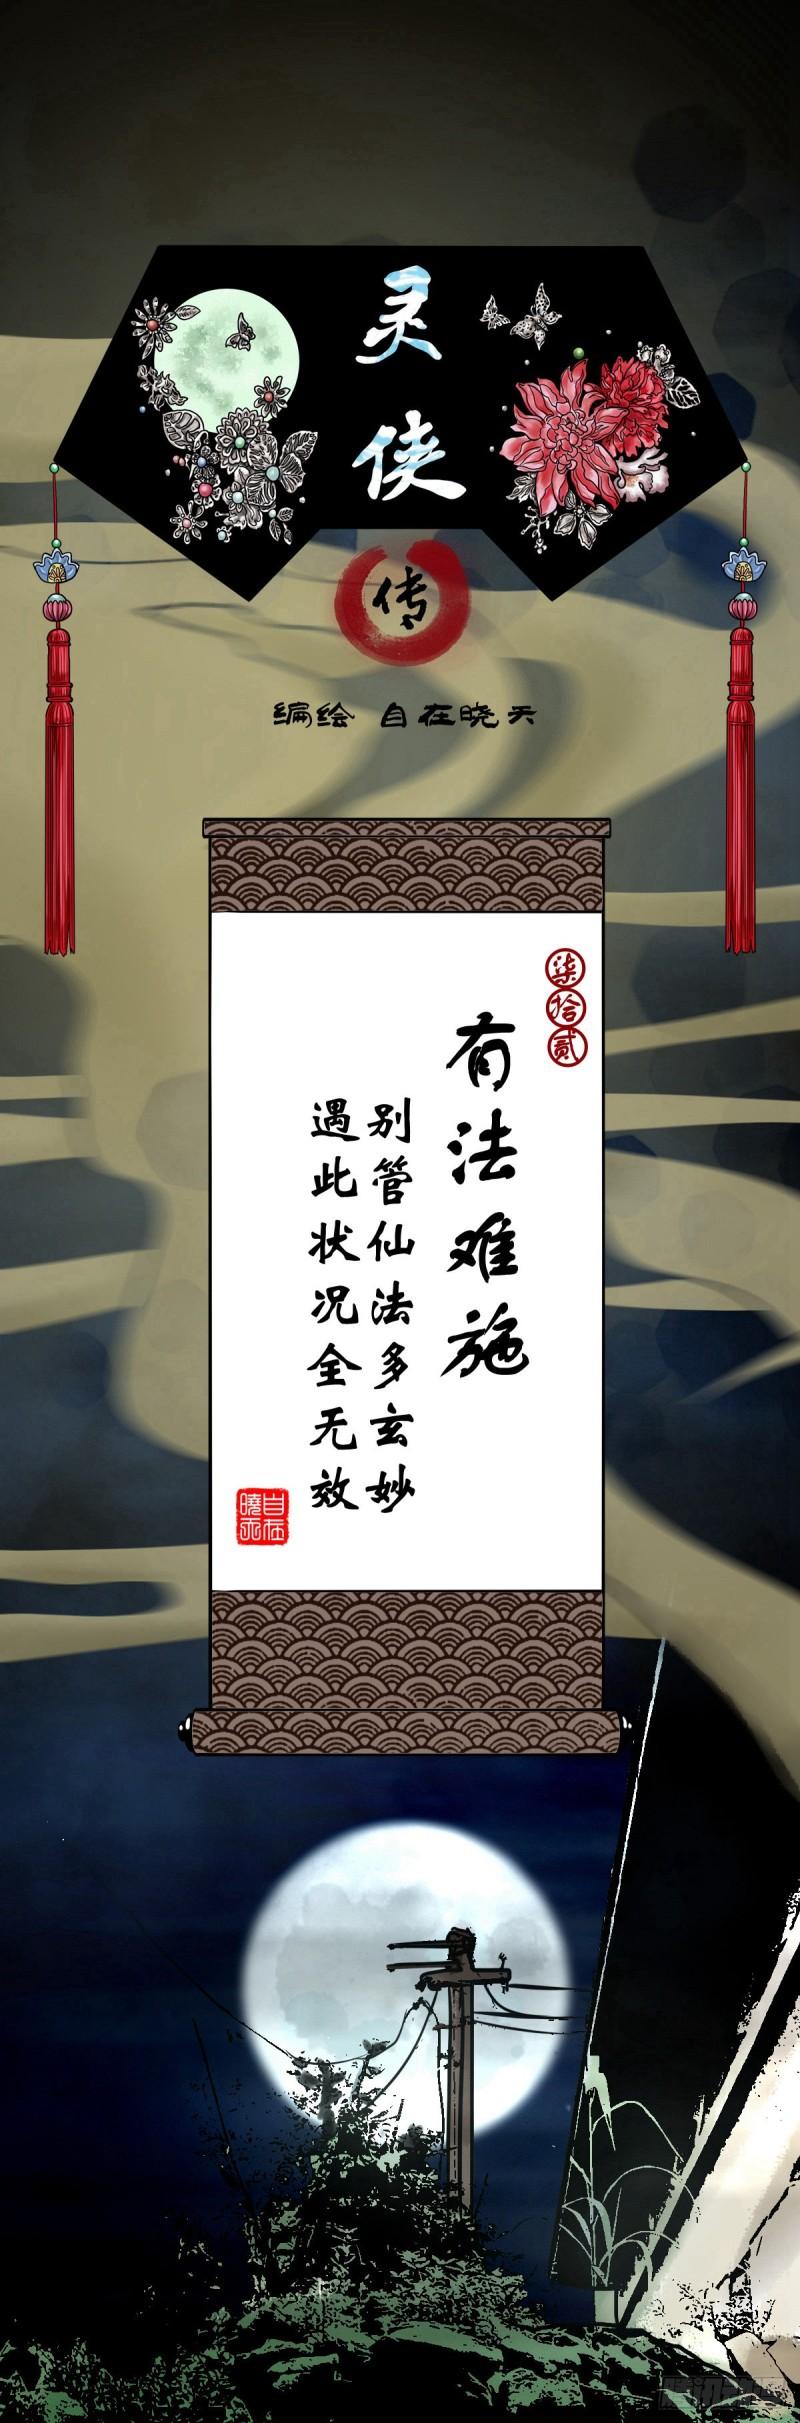 灵侠
传
编绘 自在晓天
柒拾贰
有法难施
别管仙法多玄妙
遇此状况全无效
自在
曉天
腾讯动漫